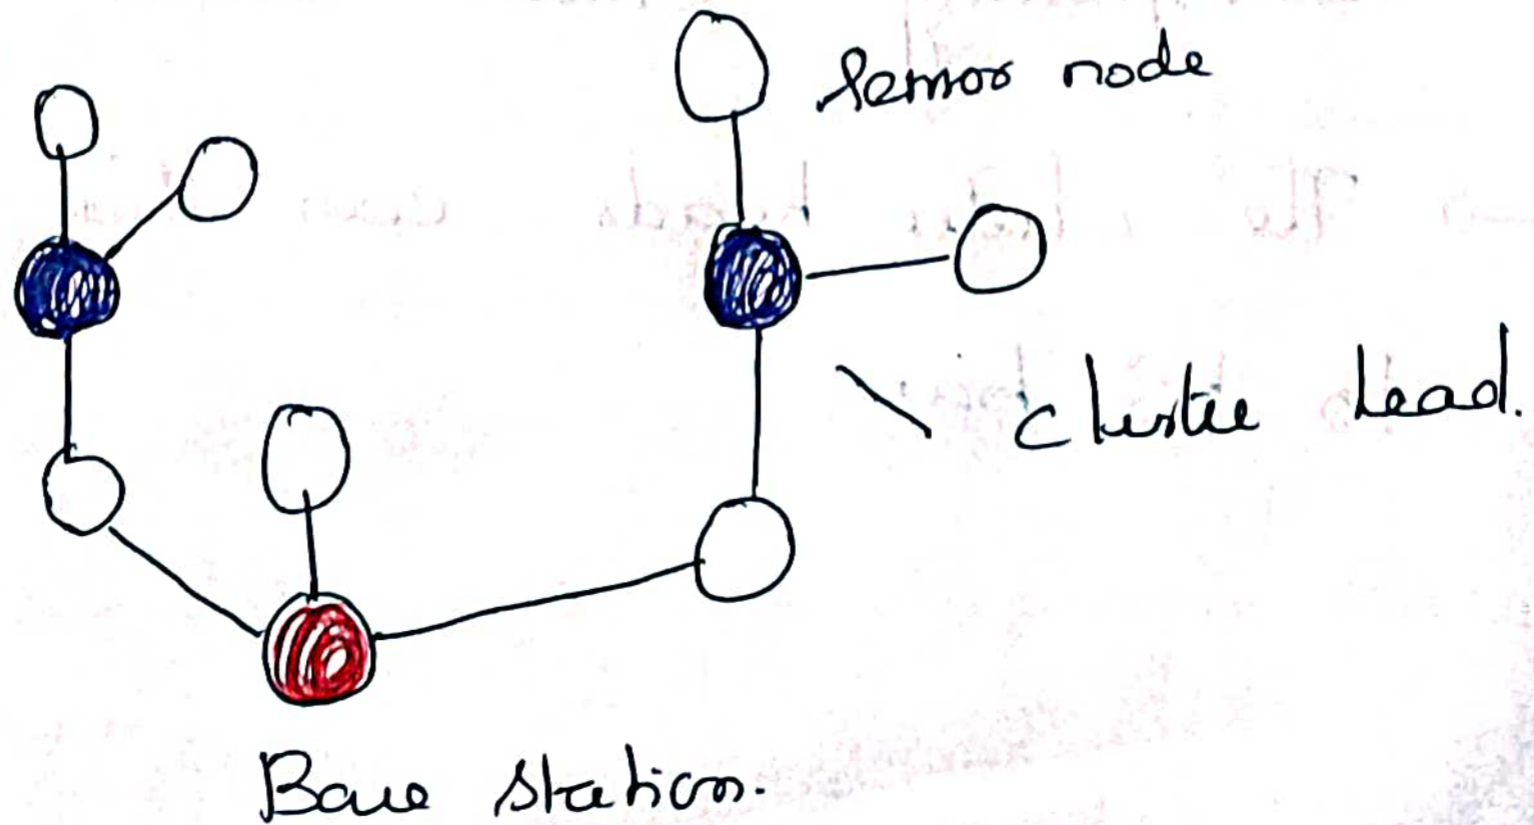 Sensor node
cluster head.
Base station.